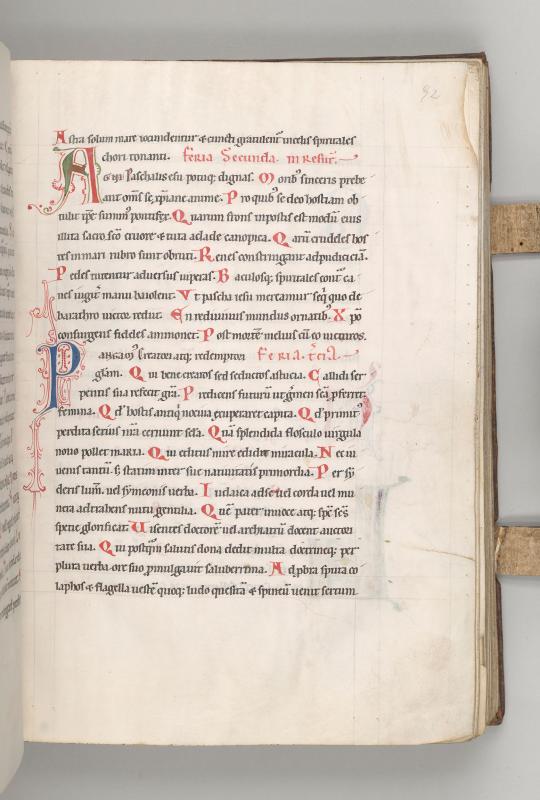 92
Astra solum mare iocundentur & cuncti gratulent᷑ melis spiritales
chori tonanti. Feria Secunda. in Resur̄.
Agni Paschalis esu potuq; dignas. Morib᷒ sinceris prebe
ant om̄s se xp̄iane anime. Pro quib᷒ se deo hostiam ob
tulit ipse summ᷒ pontifex. Quarum frons in postis est modū eius
illita sacrosc̄o cruore & tuta a clade canopica. Quarū crudeles hos
tes in mari rubro sunt obruti. Renes constringant ad pudiciciā.
Pedes tutentur adversus viperas. Baculosq; spiritales cont᷑ ca
nes iugit᷑ manu baiolent. Vt pascha ih̄u mereamur seq̄ quo de
barathro victor redit. En redivivus mundus ornatib᷒ Xpō
consurgens fideles ammonet. Post mortē melius cū eo victuros.
Pangam᷒ creatoris atq; redemptoris Feria. t̄cia
gl̄am. Qui bene creatos sed seductos astucia. Callidi ser
pentis sua refecit gr̄a. Prediciens futurū ut gm̄en seq̄ p̄ferret
femina. Qd̓ hostis antiq̄ nociva exuperaret capita. Qd̓ primit᷒
perdita serius iā cernunt scl̄a. Quā splendida flosculo virgula
novo pollet maria. Qui editus mire edidit miracula. Nec iu
venis tantū. s; statim inter sue nativitatis primordia. Per sy
deris lum̄. vel symeonis verba. Iudaica ad se vel corda vel mu
nera adtrahens nutu gentilia. Quē pater in voce atq; sp̄c sc̄s
specie glorificat. Visentes doctorē vel archiatrū docent auctori
tate sua. Qui postq̄m salutis dona dedit multa doctrineq; per
pluta verba ore suo p̄mulgavit saluberrima. Ad p̄bra sputa co
laphos & flagella vestē quoq; ludo questā & spineū venit sertum